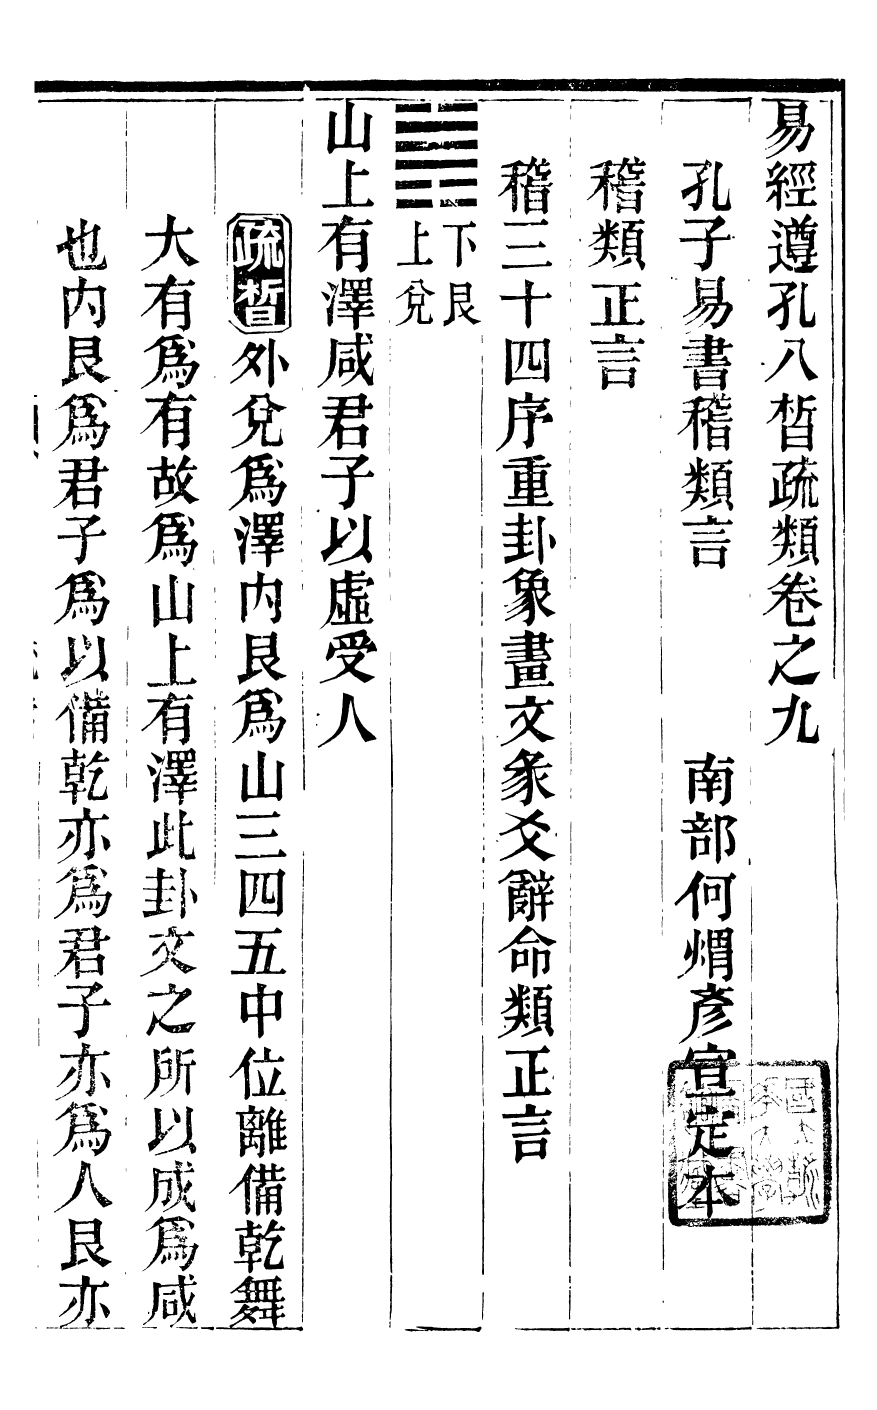 易經遵孔八晳疏類卷之九
孔子易書稽類言　南部何焨彥宣定本
稽類正言
稽三十四序重卦象畫文彖爻辭命類正言
䷞下艮上兌
山上有澤咸君子以虛受人
疏晳外兌爲澤內艮爲山三四五中位離備乾舞
大有爲有故爲山上有澤此卦文之所以成爲咸
也內艮爲君子爲以備乾亦爲君子亦爲人艮亦